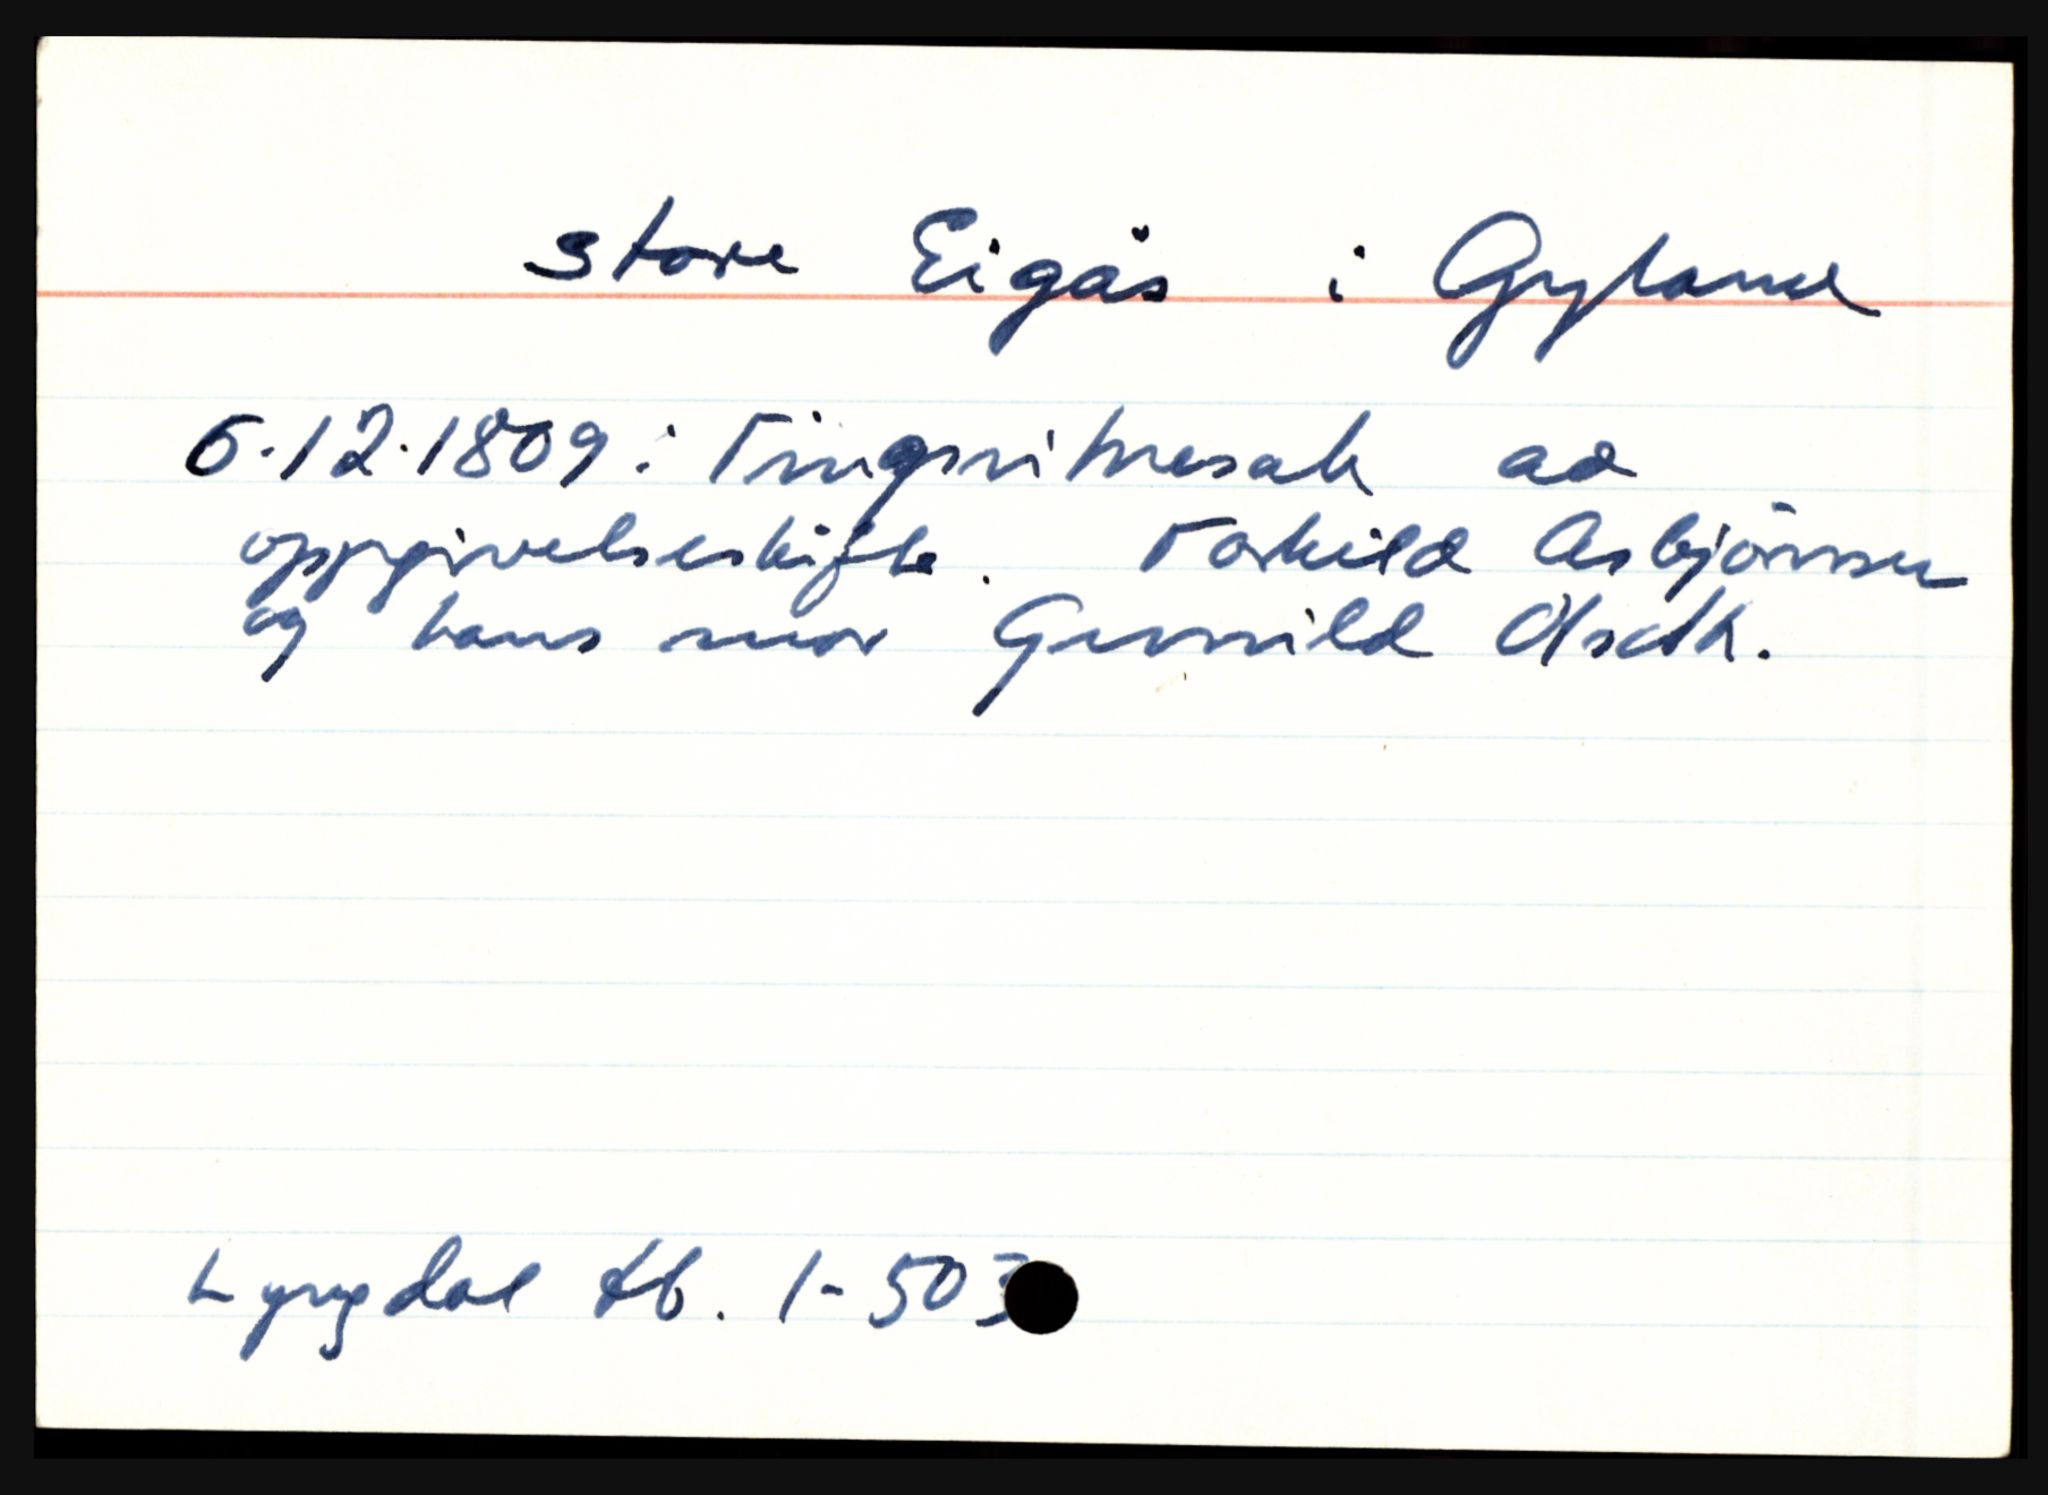 Store Eigås i Gyland
5.12.1809: Tingsvitnesak ad
oppgivelseskifte. Torkild Asbjörnsen
og hans mor Gunnild Olsdtr.
Lyngdal tb. 1-503